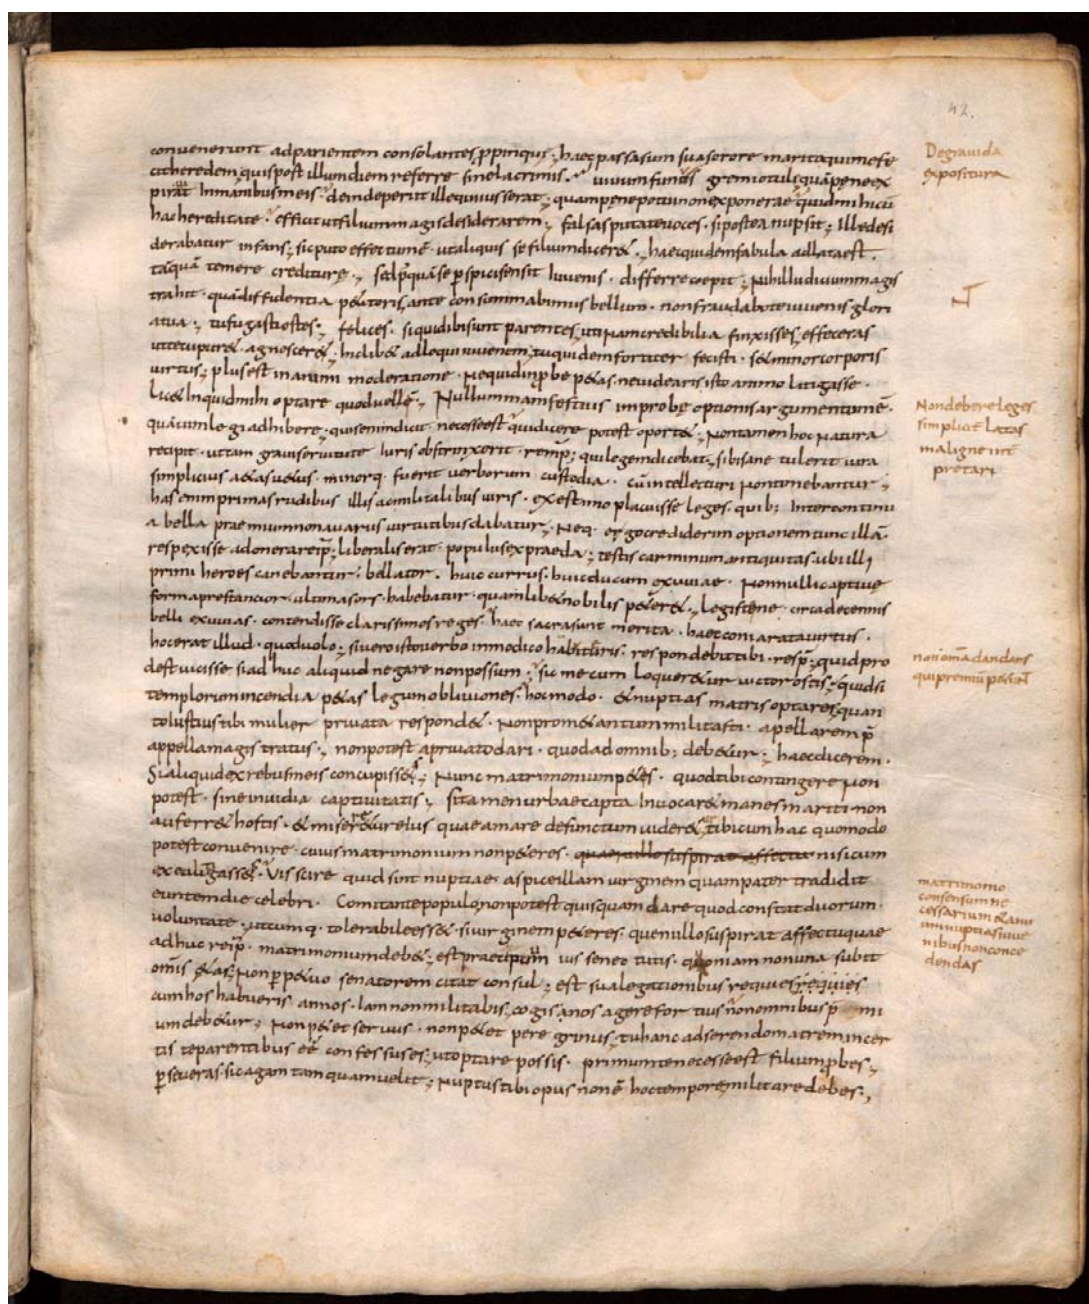 42.
conuenerunt adparientem consolantes ppinqui; haec passa sum sua sorore marita quimefe
cit heredem quis post illum diem referre sine lacrimis uiuum gremio tuli quā pene ex
pirat Inmanibus meis deinde perit ille qui iusserat; quam pene potui non exponerae quid mihi cū
hac hereditate effecit ut filium magis desiderarem; falsas putate uoces si postea nupsit; Ille desi
derabatur infans; sic puto effectumē ut aliquis se filium dicer&; haec quidem fabula adlata est
taquā temere creditur se perspici sensit Iuuenis differre coepit; Nihil lud iuuum magis
trahit quā diffidentia p&itoris ante consummabimus bellum non fraudabo te iuuenis glori
a tua; tu fugasti ostes; felices si quidibi sunt parentes utinam credibilia finxisses effeceras
ut te cuper& agnoscer&; hic lib& adloqui iuuenem; tu quidem fortiter fecisti sed minor corporis
uirtus; plus est in animi moderatione Nequid inpbe p&as ne uidearis isto animo litigasse
lic& Inquid mihi optare quod uellē; Nullum manifestius improbę optionis argumentumē
quā uim legi adhibere quis enim dicit necesse est quidicere potest oport&; Non tamen hoc Natura
recipit ut tam graui seruitute Iuris obstrinxerit remp; qui legem dicebat; sibi sane tulerit iura
simplicius a&as u&us minorq fuerit uerborum custodia cū intellecturi Non tenebantur;
has enim primas rudibus illis ac militalibus uiris existimo placuisse leges quib; Inter continu
a bella praemium non auarus uirtutibus dabatur; Neq ergo crediderim optionem tunc illā
respexisse ad onera reip; liberalis erat populus ex praeda; testis carminum antiquitas ubi illi
primi heroes canebantur bellator huic currus huic ducum exuuiae Nonnulli captiue
forma prestancior ultima sors habebatur quam lib& nobilis p&er&; legistene circa decennis
belli exuuias contendisse clarissimos reges haec sacra sunt merita haec uirtus
hoc erat illud quod uolo; si uero isto uerbo inmodico respondebit tibi resp; quid pro
dest uicisse si ad huc aliquid negare non possum sic me cum loquer&ur uictor ostis; quid si
templorum incendia p&as legum obliuiones hoc modo &nuptias matris optares quan
to Iustius tibi mulier priuata respond& Non prom&antum militasti apellarem p
appella magistratus; non potest apriuato dari quod ad omnib; deb&ur; haec dicerem
Si aliquid ex rebus meis concupisses; Nunc matrimonium p&es quod tibi contingere Non
potest sine inuidia captiuitatis; sit amen urbae capta Inuocar& manes mariti non
auferr& hostis &miser&ur eius quae amare defunctum uider& tibi cum hac quomodo
potest conuenire cuius matrimonium non p&eres quae nullo suspirat affectu nisi cum
Vis scire quid sint nuptiae aspice illam uirginem quam pater tradidit
euntem die celebri Comitante populo non potest quisquam dare quod constat duorum
uoluntate utcumq tolerabile ess& si uirginem p&eres que nullo suspirat affectu quae
ad huc reip matrimonium deb&; est praecipuum ius senec tutis quoniam non una subit
omīs &as; Non p p&uo senatorem citat consul; est sua legationibus requies requies
cum hos habueris annos Iam non militabis; cogis anos agere fortius non omnibus p mi
um deb&ur; Non p&et seruus non p&et pere grinus; tu hanc adserendo matrem incer
tis te parentibus eē confessus es; ut optare possis primum te necesse est filium pbes;
pseueras sic agam tam quam uelit; Nuptus tibi opus nonē hoc tempore militare debes;
De grauida
expositura
Non debere leges
simplicit latas
maligne int
pretari
non omā dandans
qui premiū p&int
matrimonio
consensum ne
cessarium
nuptias iuue
nibus non conce
dendas